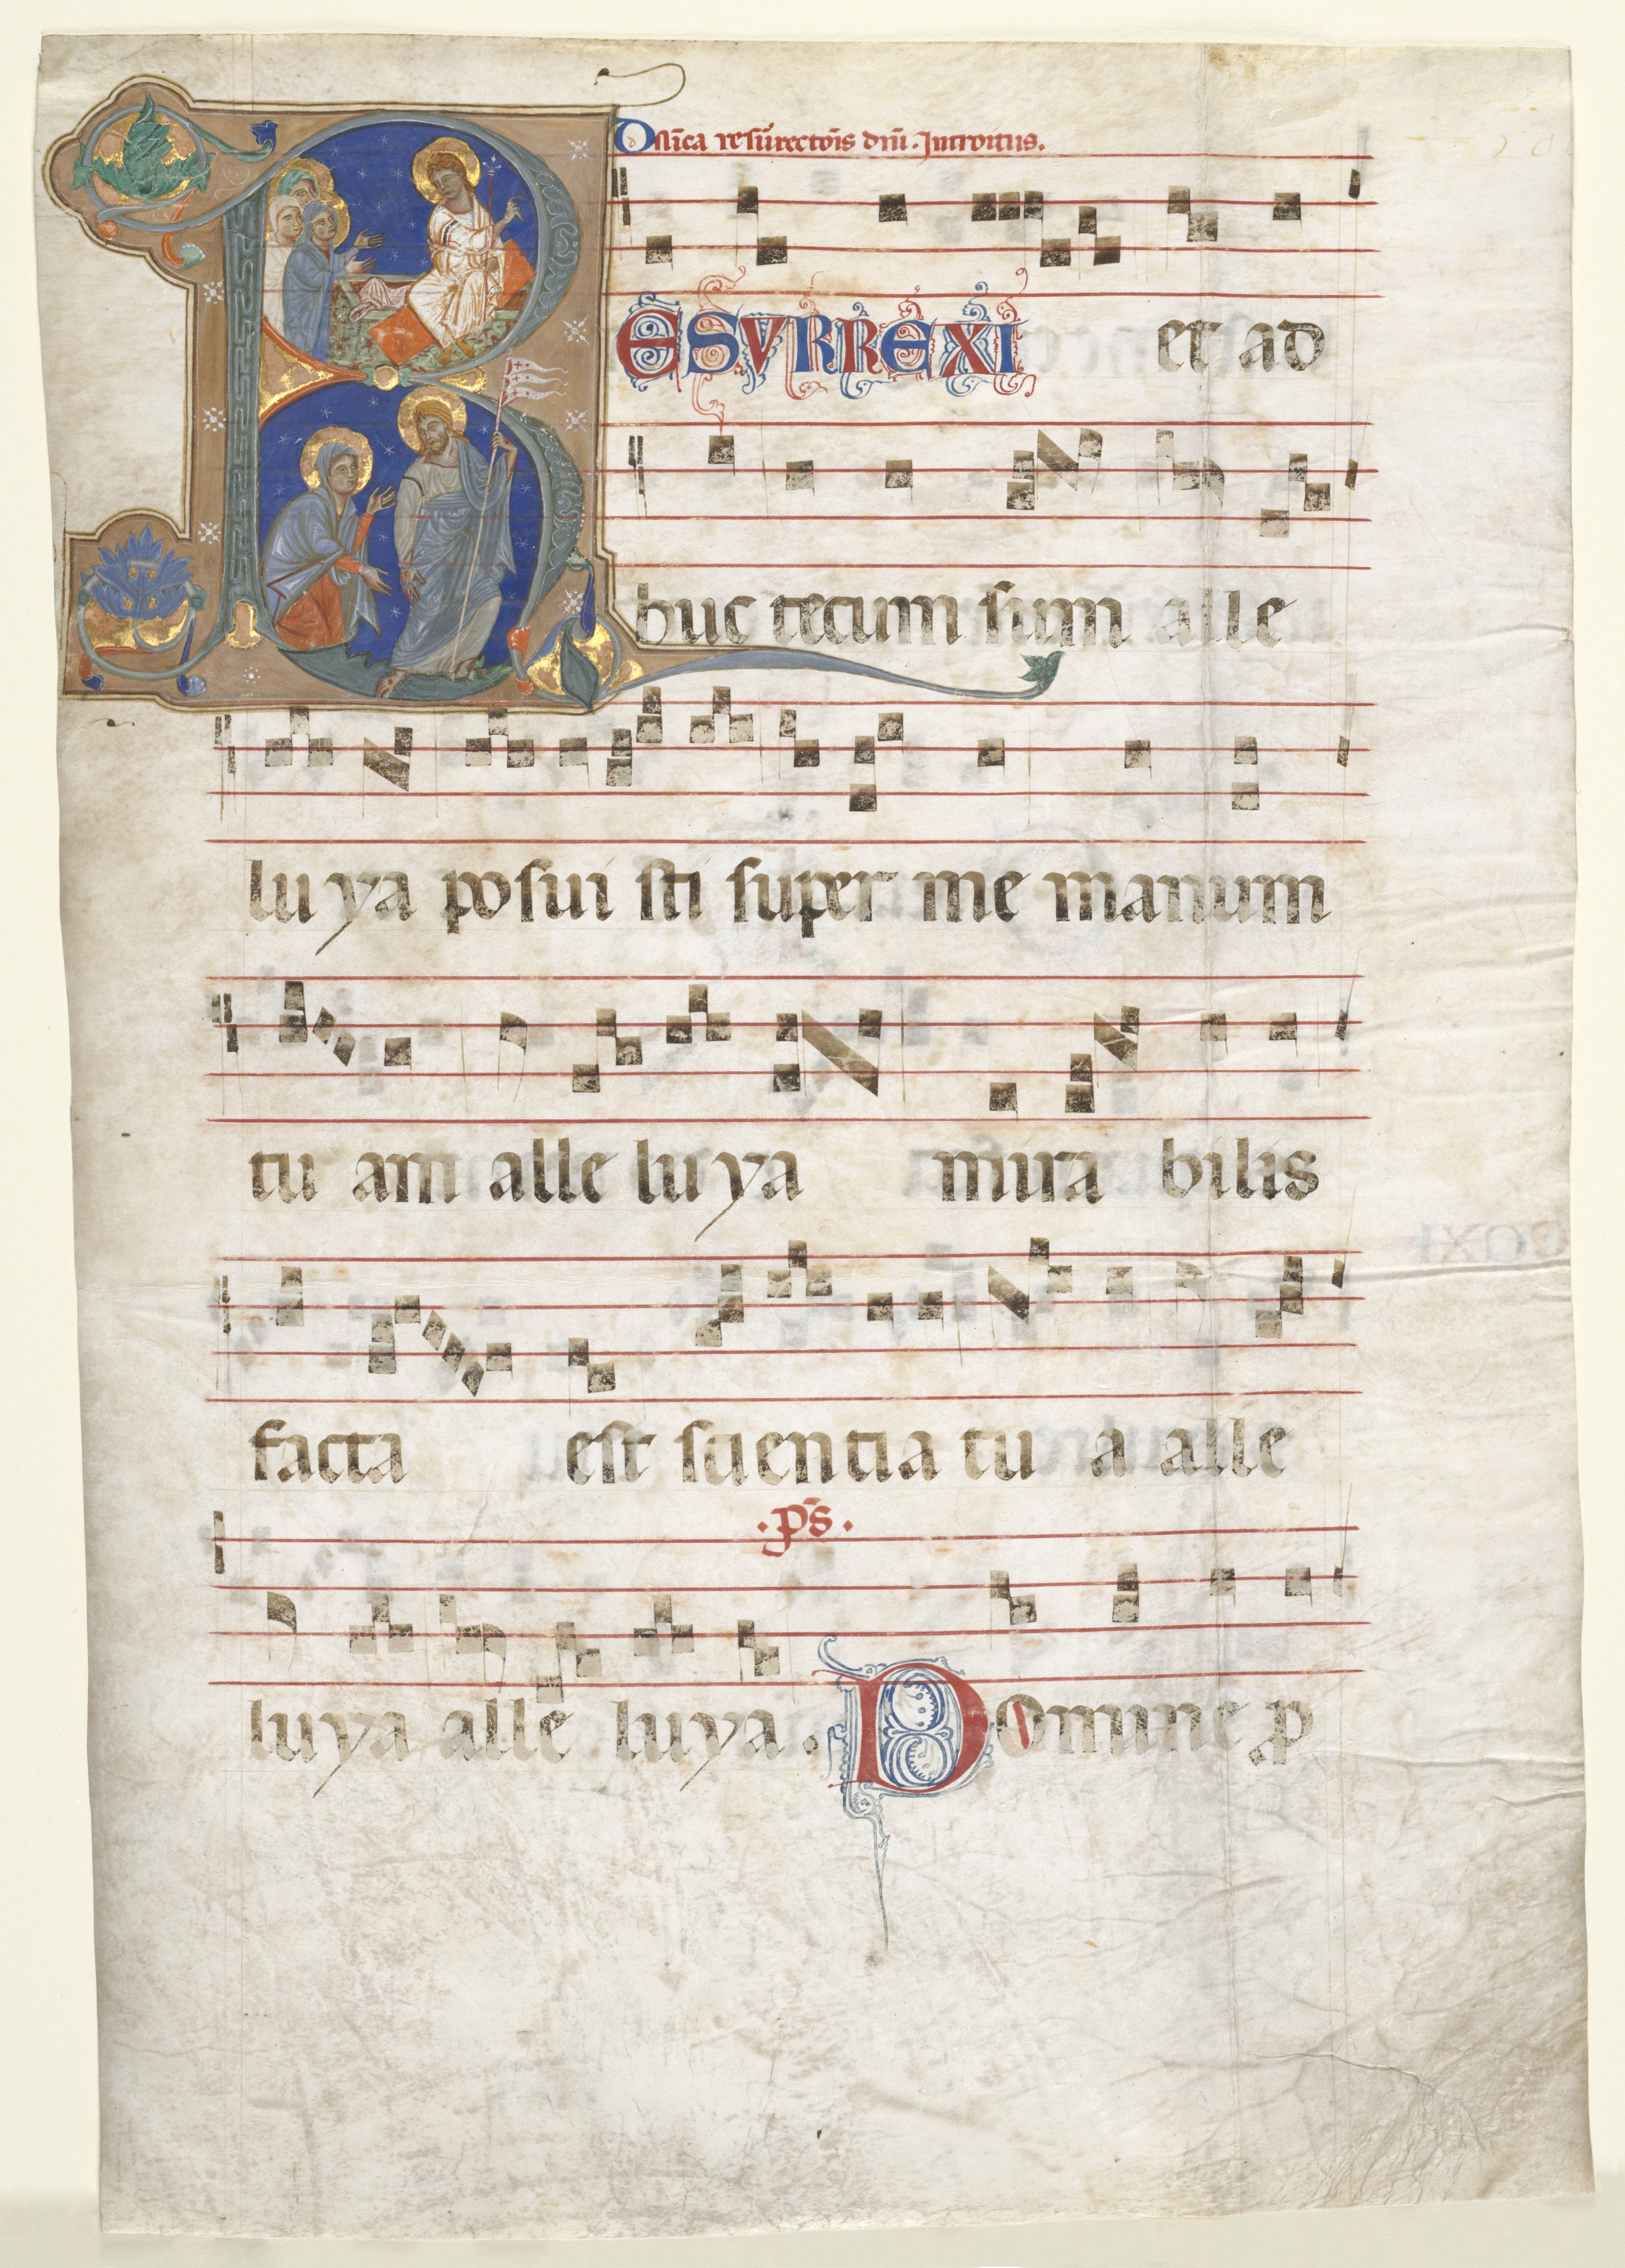 Dn̄ica resurrectōis dn̄i. Introitus.
RESVRREXI et ad
huc tecum sum alle
lu ya posui sti super me manum
tu am alle lu ya mira bilis
facta est scientia tu a alle
.ps̄.
luya alle luya. Domine ꝓ